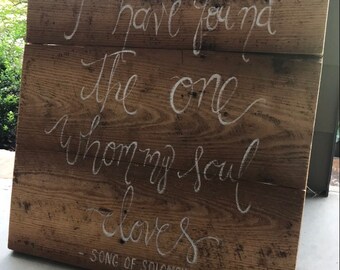 I have found
the one
whom my soul
~loves~
- SONG OF SOLOMO